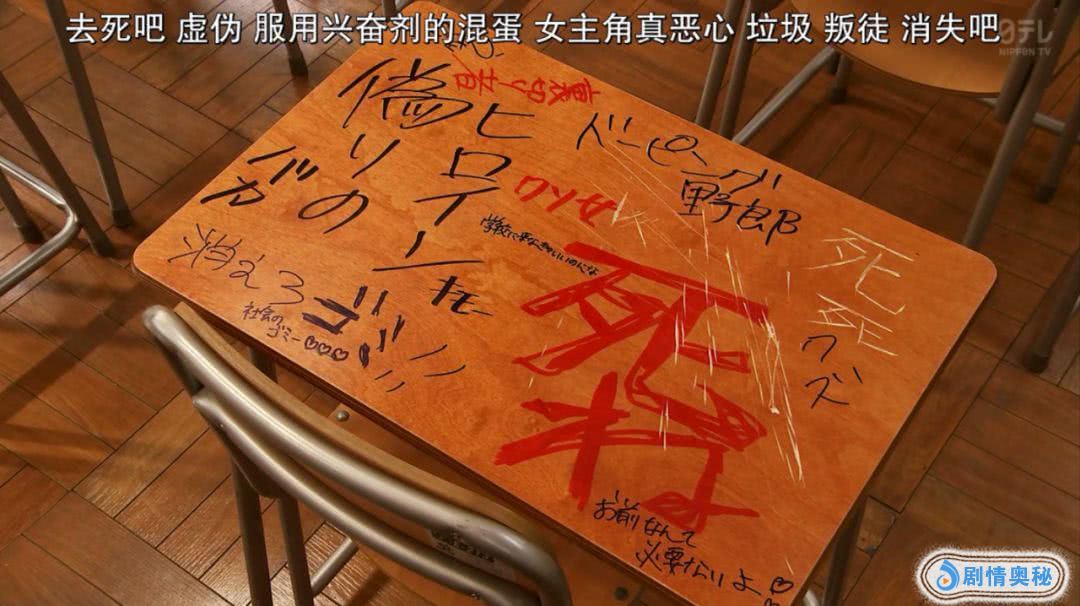 去死吧 虚伪 服用兴奋剂的混蛋 女主角真恶心 垃圾 叛徒 消失吧
日テレ
NIPPON TV
裏切り者
偽りの
ヒロイン
ガガ
キモー
ドーピング
野郎
クソ女
学校に来なきゃいいのにな
死ね
死
死
クズ
消えろ
社会の
ゴミー♡♡♡
お前なんて
必要ないよ♡
剧情奥秘